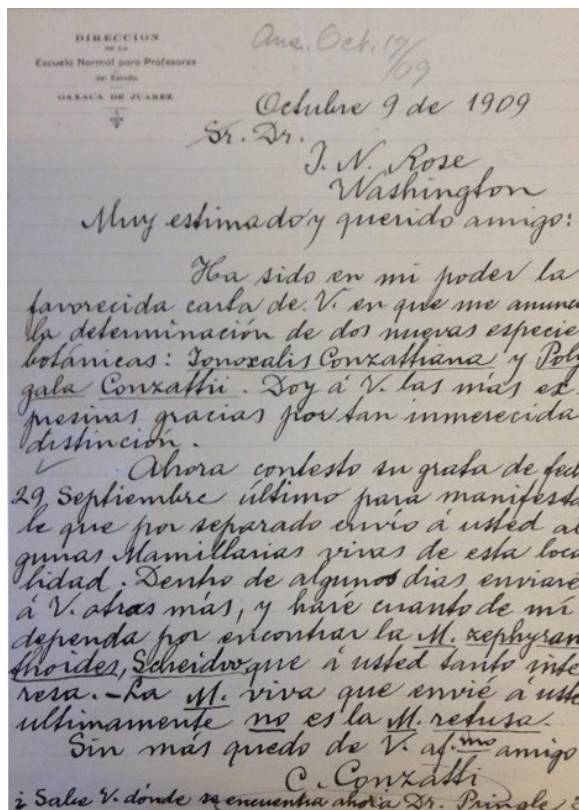 DIRECCION
DE LA
Escuela Normal para Profesores
del Estado.
OAXACA DE JUAREZ
Ans. Oct. 19/09
Octubre 9 de 1909
Sr. Dr.
J. N. Rose
Washington
Muy estimado y querido amigo:
Ha sido en mi poder la
favorecida carta de V. en que me anunc
la determinación de dos nuevas especie
botánicas: Ionoxalis Conzattiana y Poly
gala Conzattii. Doy á V. las más ex
presivas gracias por tan inmerecida
distinción.
Ahora contesto su grata de fech
29 Septiembre último para manifesta
le que por separado envío á usted al
gunas Mamillarias vivas de esta loca
lidad. Dentro de algunos dias enviaré
á V. otras más, y haré cuanto de mí
dependa por encontrar la M. zephyran
thoides, Scheidw que á usted tanto inte
resa. - La M. viva que envié á uste
ultimamente no es la M. retusa.
Sin más quedo de V. af.mo amigo
C. Conzatti
¿Sabe V. dónde se encuentra ahora Dr. Pringle?